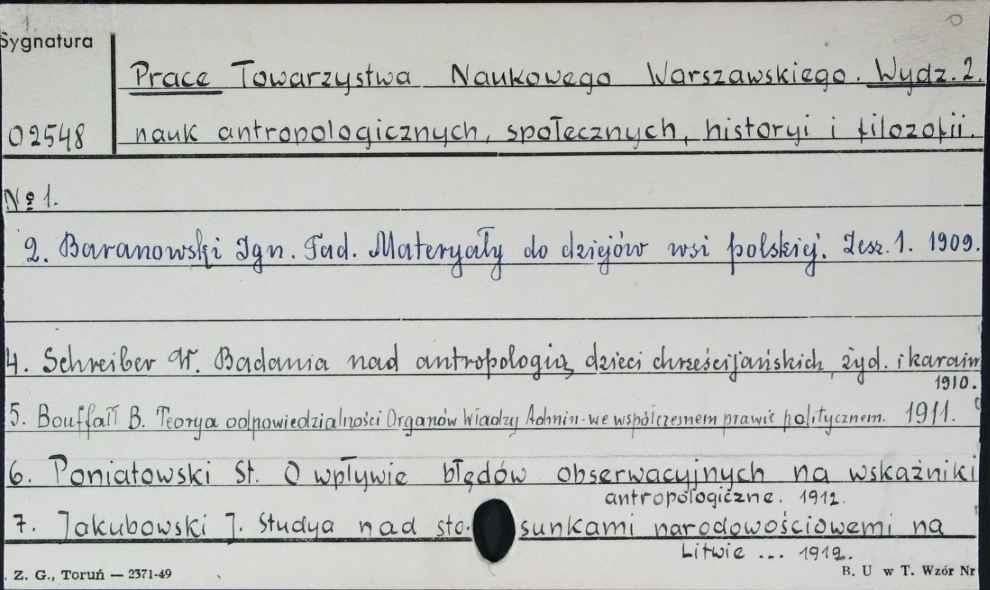 Sygnatura
Prace Towarzystwa Naukowego Warszawskiego. Wydz. 2.
02548
nauk antropologicznych, społecznych, historyi i filozofii.
№ 1.
2. Baranowski Ign. Tad. Materyały do dziejów wsi polskiej. Zesz. 1. 1909.
4. Schreiber W. Badania nad antropologią dzieci chrześcijańskich, żyd. i karaim
1910.
5. Bouffałł B. Teorya odpowiedzialności Organów Władzy Admin. we współczesnem prawie politycznem. 1911.
6. Poniatowski St. O wpływie błędów obserwacyjnych na wskaźniki
antropologiczne. 1912.
7. Jakubowski J. Studya nad sto- sunkami narodowościowemi na
Litwie ... 1912.
Z. G., Toruń — 2371-49
B. U w T. Wzór Nr